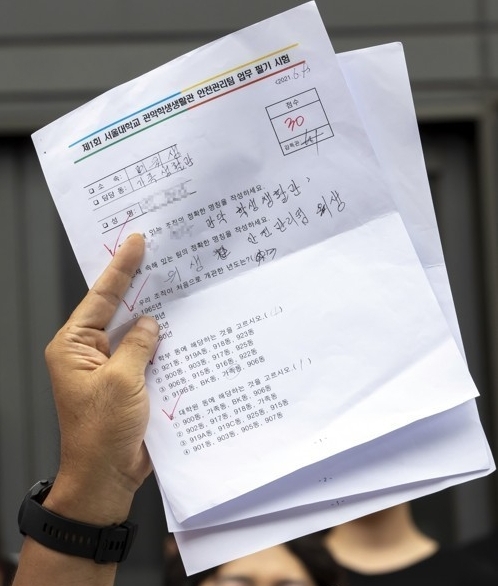 제1회 서울대학교 관악학생생활관 안전관리팀 업무 필기 시험
(2021.6.
점수
30
감독관
□ 소 속:
□ 담당 동: 기존생활관
□ 성 명:
있는 조직의 정확한 명칭을 작성하세요.
관악 학생생활관
속해 있는 팀의 정확한 명칭을 작성하세요.
안전관리팀 위생
우리 조직이 처음으로 개관한 년도는?
① 1965년
학부 동에 해당하는 것을 고르시오.( )
① 921동, 919A동, 918동, 923동
② 900동, 903동, 917동, 925동
③ 906동, 915동, 916동, 922동
④ 919B동, BK동, 가족동, 906동
대학원 동에 해당하는 것을 고르시오.( )
① 900동, 가족동, BK동, 906동
② 902동, 917동, 918동, 가족동
③ 919A동, 919C동, 925동, 915동
④ 901동, 903동, 905동, 907동
- 1 -
- 2 -
- 3 -